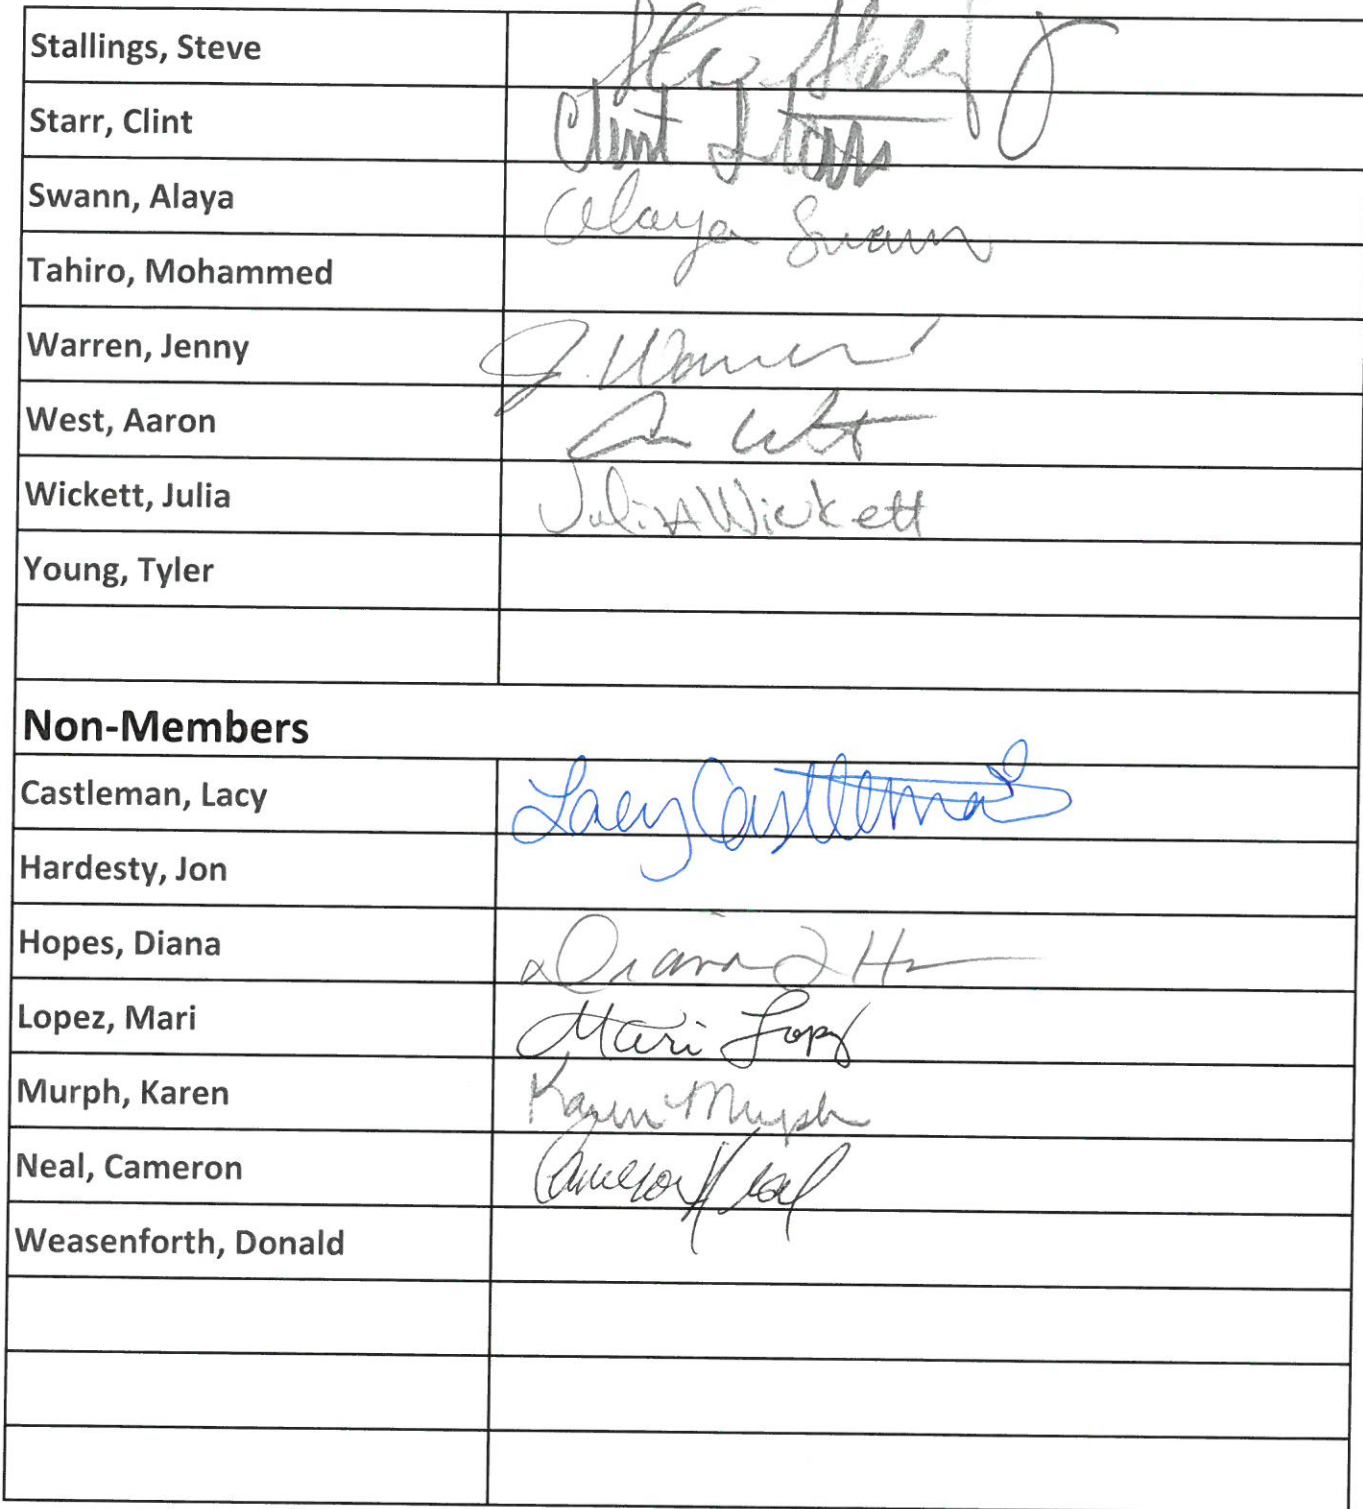 Stallings, Steve
Starr, Clint Clint Starr
Swann, Alaya Alaya Swann
Tahiro, Mohammed
Warren, Jenny J. Warren
West, Aaron
Wickett, Julia Julia Wickett
Young, Tyler
Non-Members
Castleman, Lacy Lacy Castleman
Hardesty, Jon
Hopes, Diana Diana
Lopez, Mari Mari Lopez
Murph, Karen Karen Murph
Neal, Cameron Cameron Neal
Weasenforth, Donald